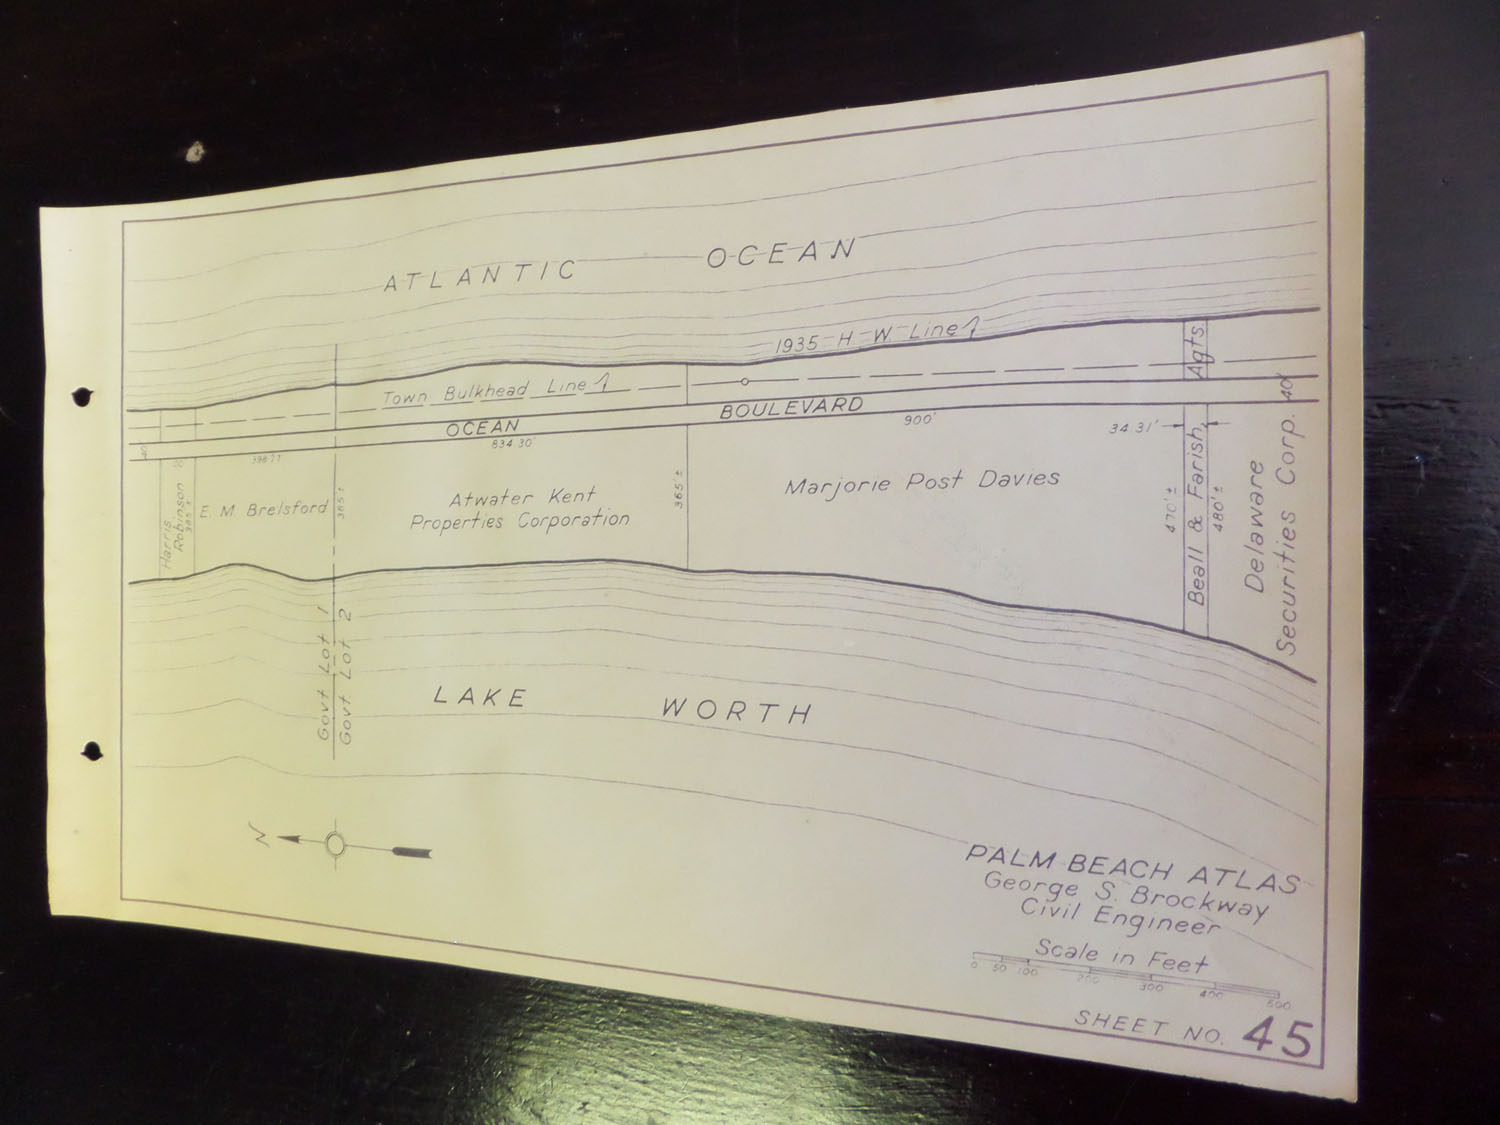 ATLANTIC OCEAN
1935 H W Line
Town Bulkhead Line
Agts.
OCEAN BOULEVARD
40'
40'
398.77
834.30'
900'
34.31'
20'
Harris
Robinson
385'±
E. M Brelsford
385'±
Atwater Kent
Properties Corporation
365'±
Marjorie Post Davies
470'±
Beall & Farish,
480'±
Delaware
Securities Corp.
Govt Lot 1
Govt. Lot 2
LAKE WORTH
N
PALM BEACH ATLAS
George S. Brockway
Civil Engineer
Scale in Feet
0 50 100 200 300 400 500
SHEET NO. 45